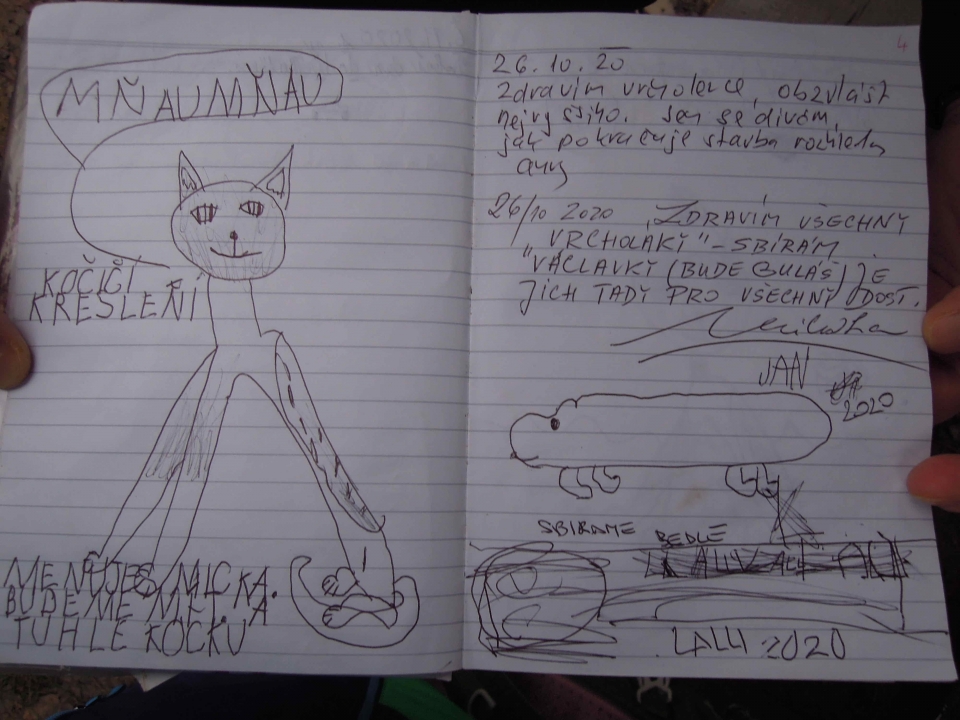 MŇAUMŇAU
KOČIČÍ
KRESLENÍ
MICKA.
BUDEME MÍT A
TUHLE KOČKU
4
26.10.20
Zdravím vrcholovce, obzvlášť
nejvyššího. Jen se dívám,
jak pokračuje stavba rozhledny
26/10 2020 ZDRAVÍM VŠECHNY
"VRCHOLÁKY" - SBÍRÁM
"VÁCLAVKY (BUDE GULÁŠ) JE
JICH TADY PRO VŠECHNY DOST.
JAN
2020
SBIRAME
BEDLE
LALLI 2020